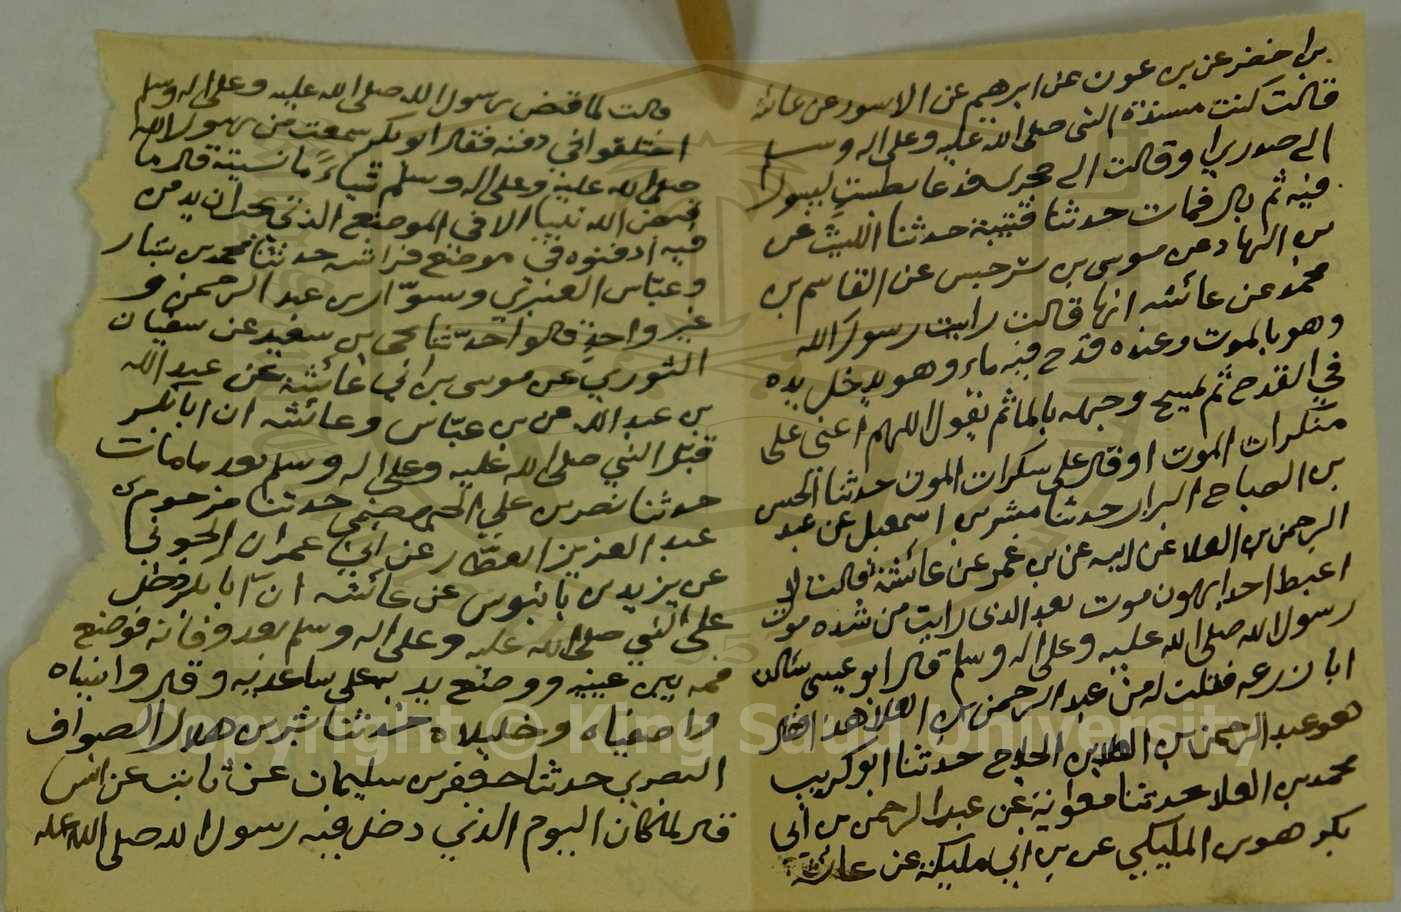 بن اخضر عن بن عون عن ابرهيم عن الاسود عن عائشة
قالت كنت مسندة النبى صلى الله عليه وعلى اله وسلم
الى صدري او قالت الى حجرى فدعا بطست ليبول
فيه ثم بال فمات حدثنا قتيبة حدثنا الليث عن
بن الهاد عن موسى بن سرجس عن القاسم بن
محمد عن عائشه انها قالت رايت رسول الله
وهو بالموت وعنده قدح فيه ماء وهو يدخل يده
في القدح ثم يمسح وجهه بالما ثم يقول اللهم اعنى على
منكرات الموت او قال على سكرات الموت حدثنا الحسن
بن الصباح البزار حدثنا مبشر بن اسمعيل عن عبد
الرحمن بن العلا عن ابيه عن بن عمر عن عائشة قالت لا
اغبط احدا بهون موت بعد الذى رايت من شده موت
رسول الله صلى الله عليه وعلى اله وسلم قال ابو عيسى سالت
ابا زرعه فقلت له من عبد الرحمن بن العلا هذا فقال
هو عبد الرحمن بن العلا بن الجلاج حدثنا ابو كريب
محمد بن العلا حدثنا معوية عن عبد الرحمن بن أبي
بكر هو بن المليكي عن بن ابي مليكة عن عائشة
قالت لما قبض رسول الله صلى الله عليه وعلى اله وسلم
اختلفوا في دفنه فقال ابو بكر سمعت من رسول الله
صلى الله عليه وعلى اله وسلم شياءً ما نسيتة قال ما
قبض الله نبيا الا في الموضع الذي يحب ان يدفن
فيه ادفنوه في موضع فراشه حدثنا محمد بن بشار
وعباس العنبري وسوّار بن عبد الرحمن و
غير واحدٍ قالوا حدّثنا يحى بن سعيد عن سفيان
الثوري عن موسى بن ابي عائشة عن عبيد الله
بن عبد الله عن بن عباس وعائشه ان ابا بكر
قبّل النبي صلى الله عليه وعلى اله وسلم بعد ما مات
حدثنا نصر بن علي الجهضمي حدثنا مرحوم بن
عبد العزيز العطّار عن ابي عمران الجوني
عن يزيد بن بابنوس عن عائشه انّ ابا بكر دخل
على النبي صلى الله عليه وعلى اله وسلم بعد وفاته فوضع
فمه بين عينيه ووضع يديه على ساعديه وقال وانبياه
واصفياه وخليلاه حدثنا بشر بن هلال الصواف
البصري حدثنا جعفر بن سليمان عن ثابت عن انس
قال لما كان اليوم الذي دخل فيه رسول الله صلى الله عليه
Copyright © King Saud University